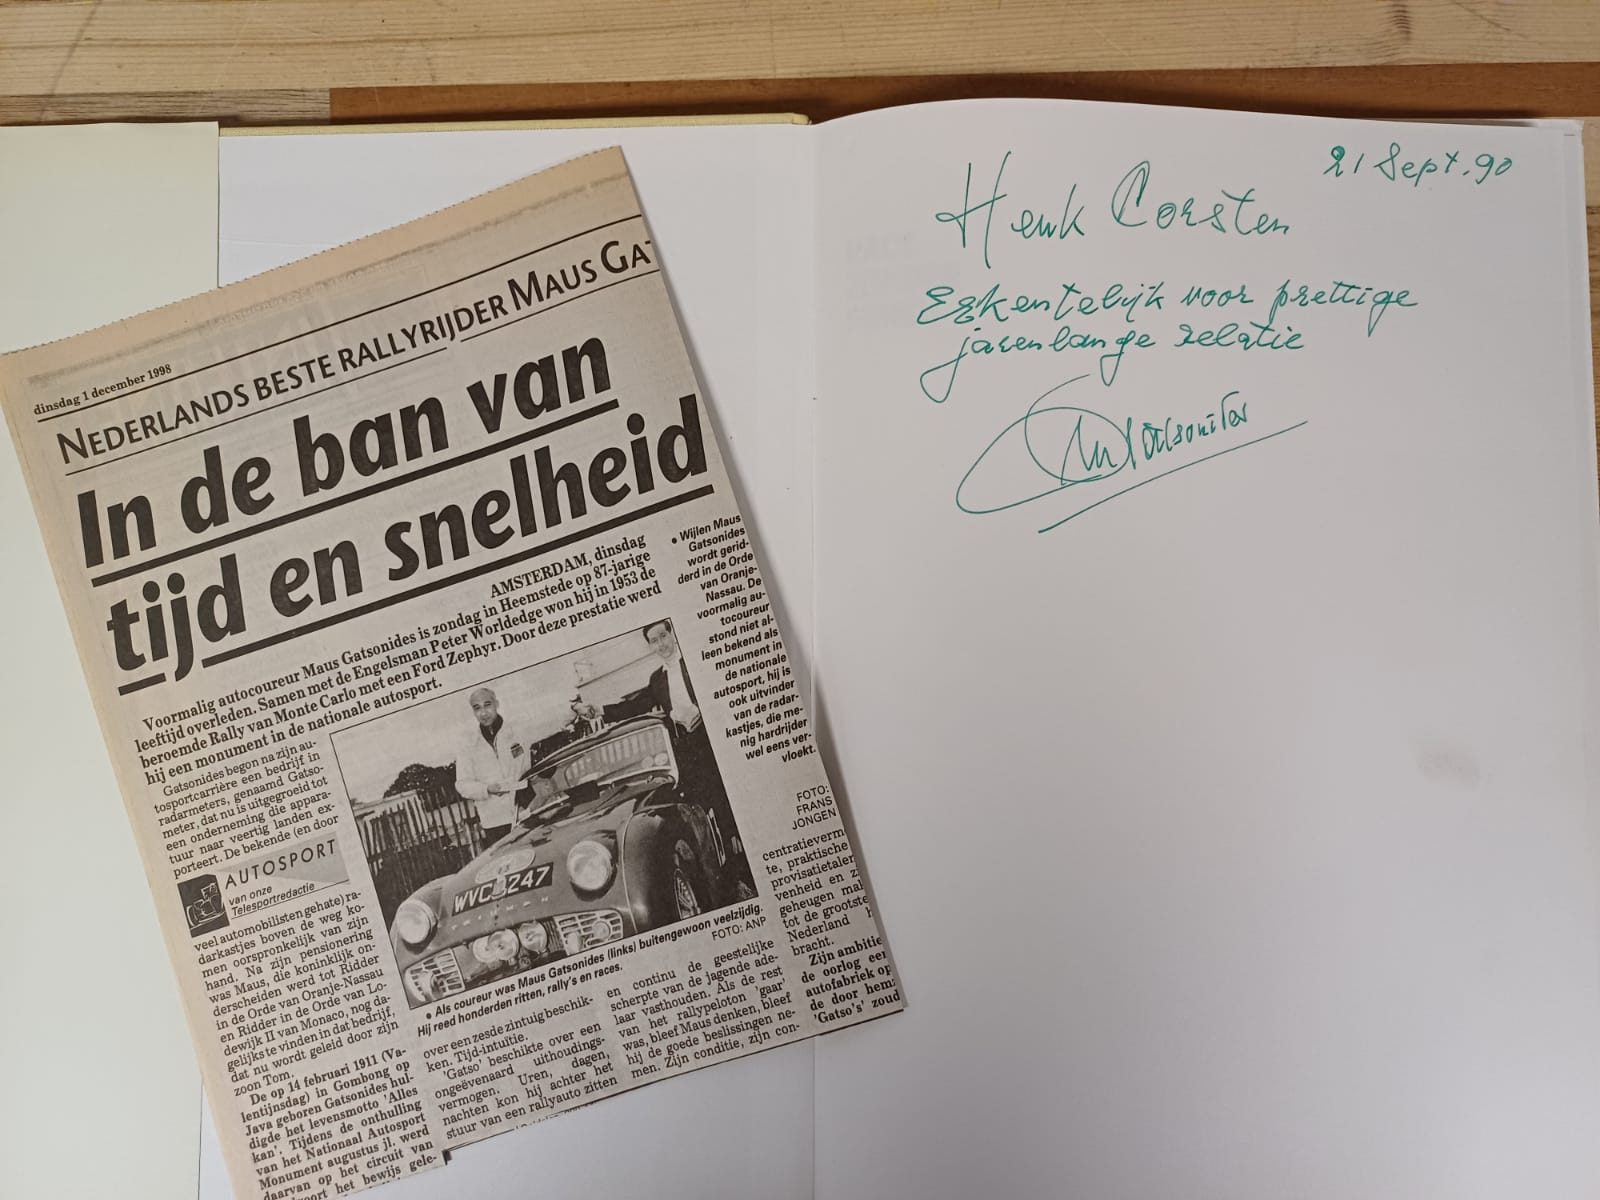 dinsdag 1 december 1998
NEDERLANDS BESTE RALLYRIJDER MAUS GAT
In de ban van
tijd en snelheid
AMSTERDAM, dinsdag
Voormalig autocoureur Maus Gatsonides is zondag in Heemstede op 87-jarige
leeftijd overleden. Samen met de Engelsman Peter Worldedge won hij in 1953 de
beroemde Rally van Monte Carlo met een Ford Zephyr. Door deze prestatie werd
hij een monument in de nationale autosport.
Gatsonides begon na zijn au-
tosportcarrière een bedrijf in
radarmeters, genaamd Gatso-
meter, dat nu is uitgegroeid tot
een onderneming die appara-
tuur naar veertig landen ex-
porteert. De bekende (en door
AUTOSPORT
van onze
Telesportredactie
veel automobilisten gehate) ra-
darkastjes boven de weg ko-
men oorspronkelijk van zijn
hand. Na zijn pensionering
was Maus, die koninklijk on-
derscheiden werd tot Ridder
in de Orde van Oranje-Nassau
en Ridder in de Orde van Lo-
dewijk II van Monaco, nog da-
gelijks te vinden in dat bedrijf,
dat nu wordt geleid door zijn
zoon Tom.
De op 14 februari 1911 (Va-
lentijnsdag) in Gombong op
Java geboren Gatsonides hul-
digde het levensmotto 'Alles
kan'. Tijdens de onthulling
van het Nationaal Autosport
Monument augustus jl. werd
daarvan op het circuit van
het bewijs gele-
WVC 247
TRIUMPH
• Als coureur was Maus Gatsonides (links) buitengewoon veelzijdig.
Hij reed honderden ritten, rally's en races.
FOTO: ANP
over een zesde zintuig beschik-
ken. Tijd-intuïtie.
'Gatso' beschikte over een
ongeëvenaard uithoudings-
vermogen. Uren, dagen,
nachten kon hij achter het
stuur van een rallyauto zitten
en continu de geestelijke
scherpte van de jagende ade-
laar vasthouden. Als de rest
van het rallypeloton 'gaar'
was, bleef Maus denken, bleef
hij de goede beslissingen ne-
men. Zijn conditie, zijn con-
• Wijlen Maus
Gatsonides
wordt gerid-
derd in de Orde
van Oranje-
Nassau. De
voormalig au-
tocoureur
stond niet al-
leen bekend als
monument in
de nationale
autosport, hij is
ook uitvinder
van de radar-
kastjes, die me-
nig hardrijder
wel eens ver-
vloekt.
FOTO:
FRANS
JONGEN
centratieverm
te, praktische
provisatietaler
venheid en z
geheugen mal
tot de grootste
Nederland h
bracht.
Zijn ambitie
de oorlog een
autofabriek op
de door hem
'Gatso's' zoud
21 Sept. 90
Henk Corsten
Erkentelijk voor prettige
jarenlange relatie
Gatsonides